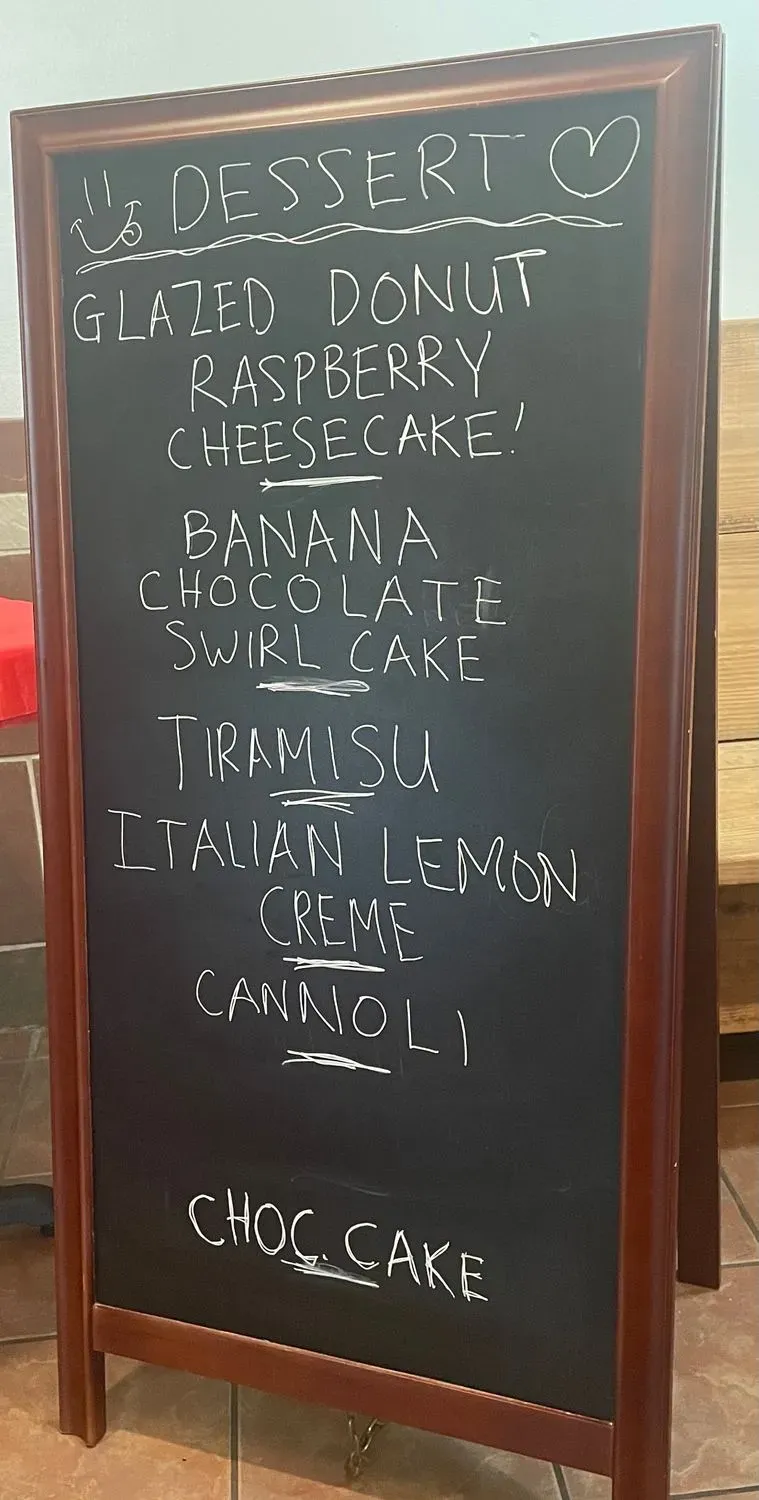 DESSERT
GLAZED DONUT
RASPBERRY
CHEESECAKE!
BANANA
CHOCOLATE
SWIRL CAKE
TIRAMISU
ITALIAN LEMON
CREME
CANNOLI
CHOC. CAKE